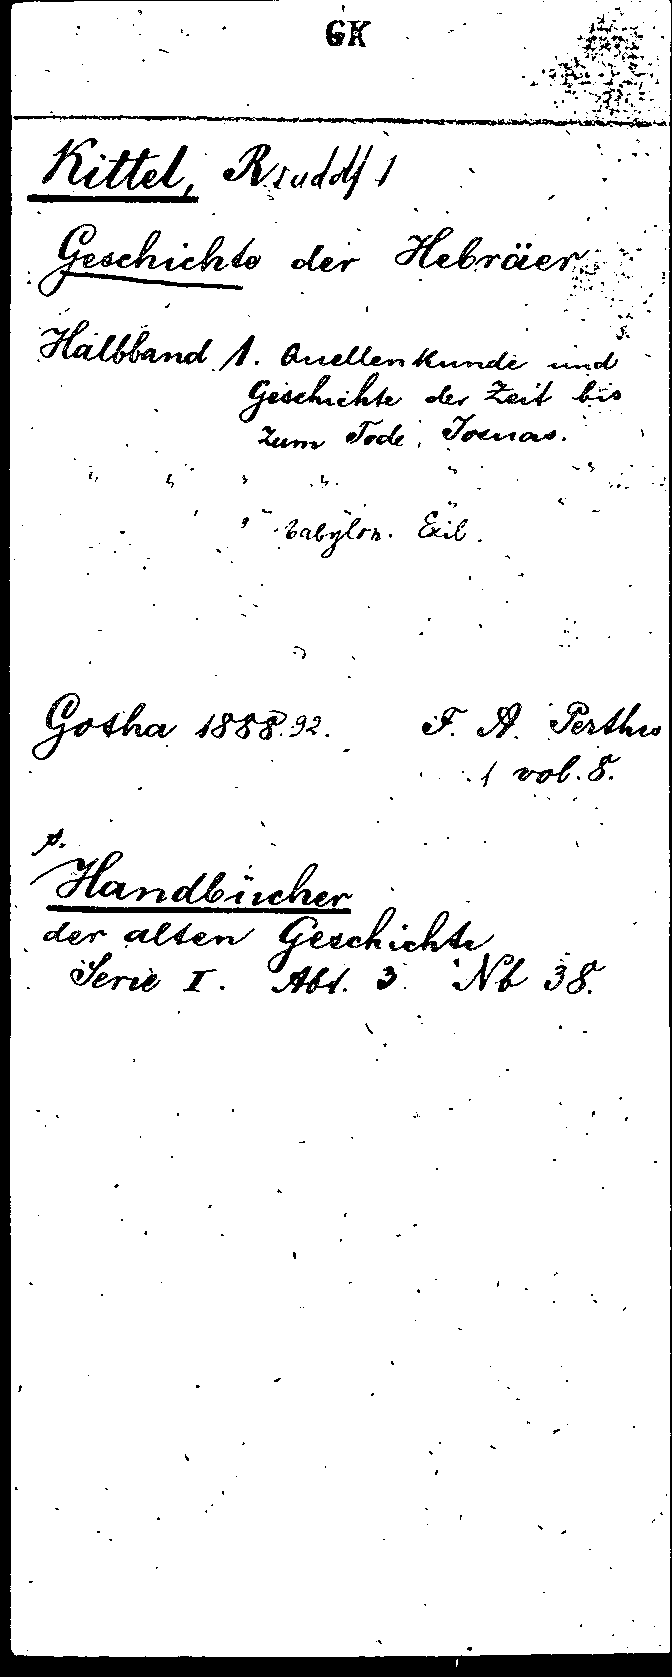 GK
Kittel, R
Geschichte der Hebräer
Halbband 1. Quellenkunde und
Geschichte der Zeit bis
zum Tode Josuas.
" " " " " "
" " babylon. Exil.
Gotha 1888.92. F. A. Perthes
1 vol. 8.
s.
Handbücher
der alten Geschichte
Serie I. Abt. 3 Nb 38.